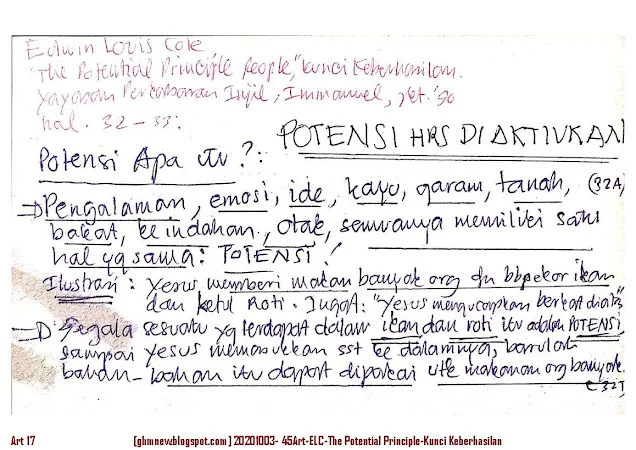 Edwin Louis Cole
"The Potential Principle People," kunci Keberhasilan.
Yayasan Perkabaran Injil, Immanuel, Jkt. '90
hal. 32-33:
POTENSI HRS DIAKTIVKAN
Potensi Apa itu?:
Pengalaman, emosi, ide, kayu, garam, tanah, (32A)
bakat, keindahan, otak, semuanya memiliki satu
hal yg sama: POTENSI!
Ilustrasi: Yesus memberi makan banyak org dn bbpekor ikan
dan ketul Roti. Ingat: "Yesus mengucapkan berkat diatas
Segala sesuatu yg terdapat dalam ikan dan roti itu adalah POTENSI,
sampai Yesus memasukkan sst ke dalamnya, barulah
bahan-bahan itu dapat dipakai utk makanan org banyak.
(32)
Art 17
[ghmnew.blogspot.com] 20201003- 45Art-ELC-The Potential Principle-Kunci Keberhasilan